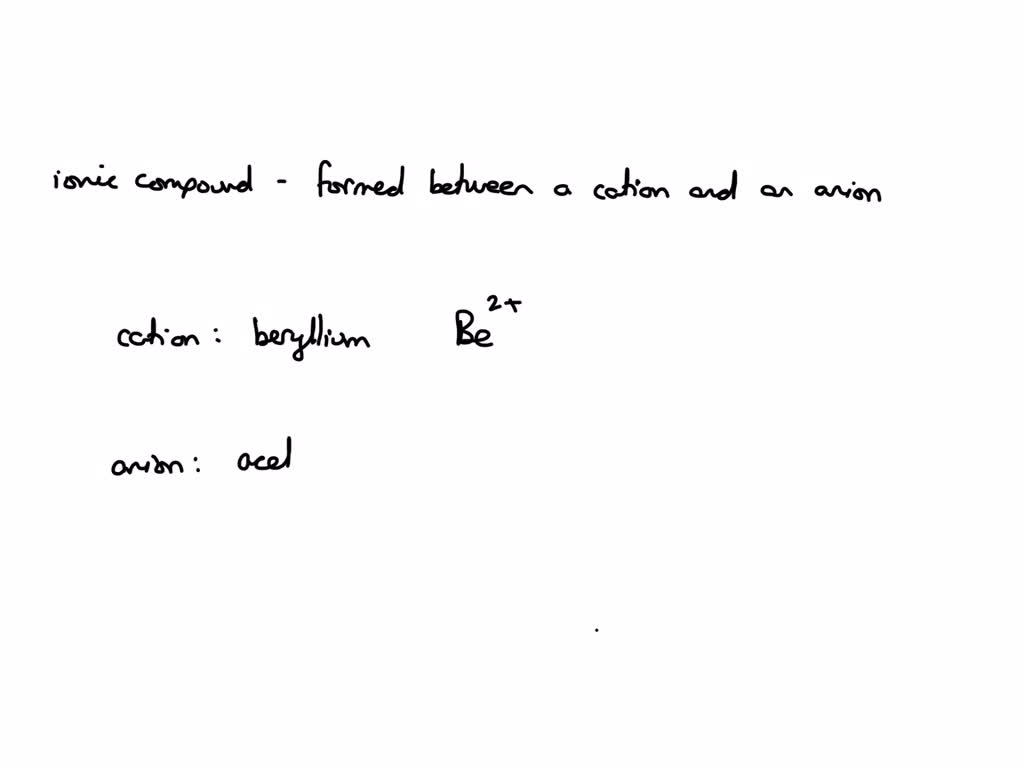 ionic compound - formed between a cation and an anion
cation: beryllium Be²⁺
anion: acet